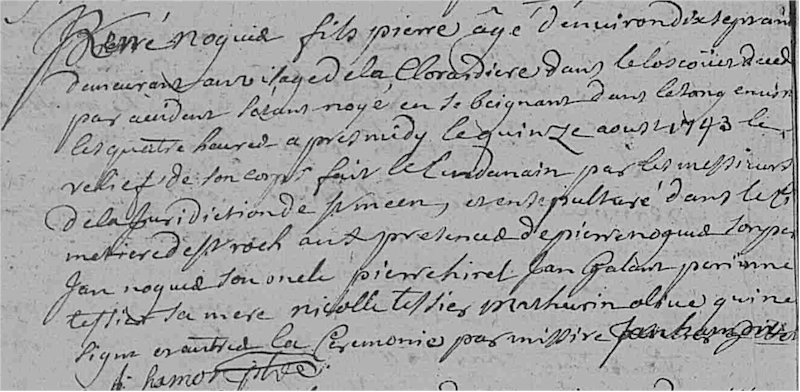 Rerré noquæ fils pierre âgé d'environ dix sept an
demeurant au vilage de la Clorardiere dans le loscoüet deced
par acident s'etant noyé en se beignant dans letang environ
les quatre heures apres midy le quinze aoust 1743 le
relief de son corps fait le lendemain par les messieurs
de la Juridiction de et ensepulturé dans le Ci
metiere de st roch aux presences de pierre noquæ son per
Jan noquæ son oncle pierre hirel Jan Galaut perinne
tessier sa mere nicolle tessier mathurin oliue qui ne
signe et autres la Ceremonie par missire Jan hamon
hamon